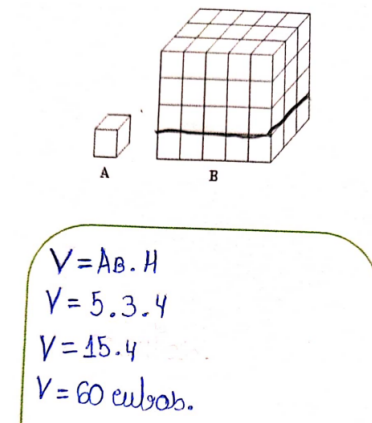 A
B
V = AB . H
V = 5 . 3 . 4
V = 15 . 4
V = 60 cubos.